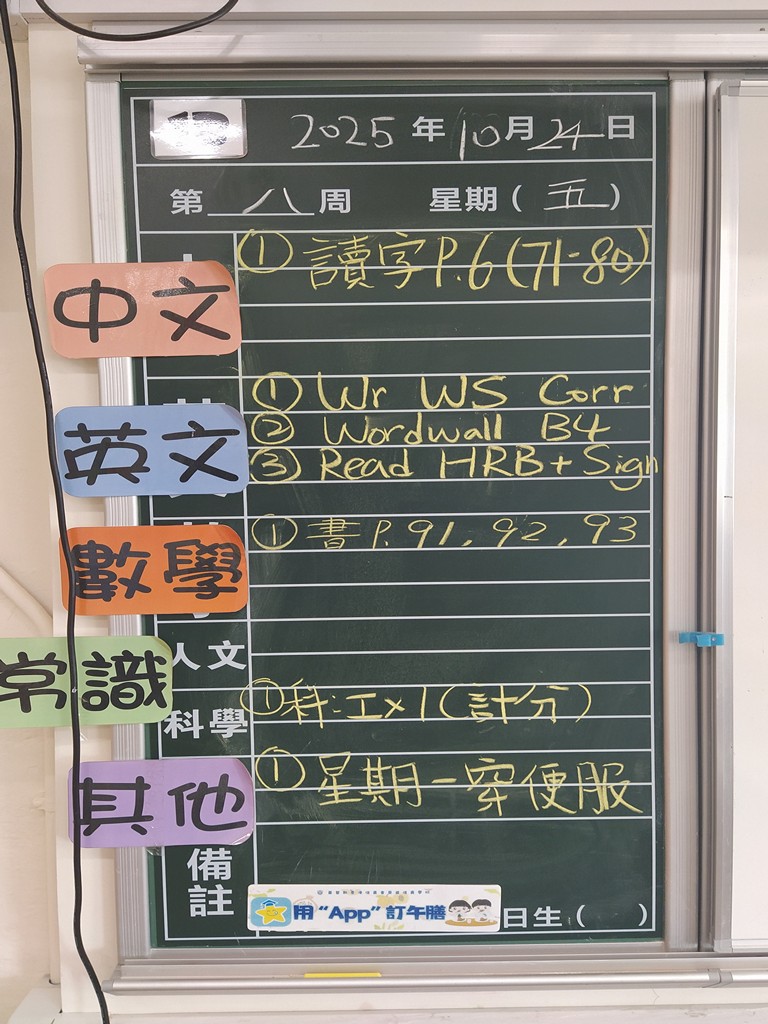 2025年10月24日
第八周 星期(五)
中文
① 讀字P.6(71-80)
英文
① Wr WS Corr
② Wordwall B4
③ Read HRB + Sign
數學
① 書 P. 91, 92, 93
人文
常識
科學
① 科:工x1(計分)
其他
① 星期一穿便服
備註
用“App”訂午膳
日生( )